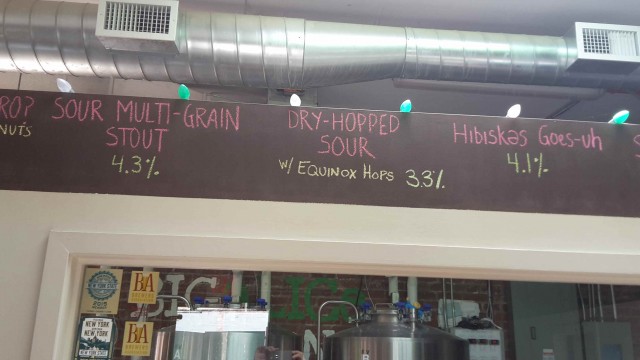 RO?
NUTS
SOUR MULTI-GRAIN
STOUT
4.3%
DRY-HOPPED
SOUR
W/ EQUINOX HOPS 3.3%
Hibiskəs Goes-uh
4.1%
S
BIG
NEW YORK
NEW YORK
BA
BREWERY
BA
BREWERY